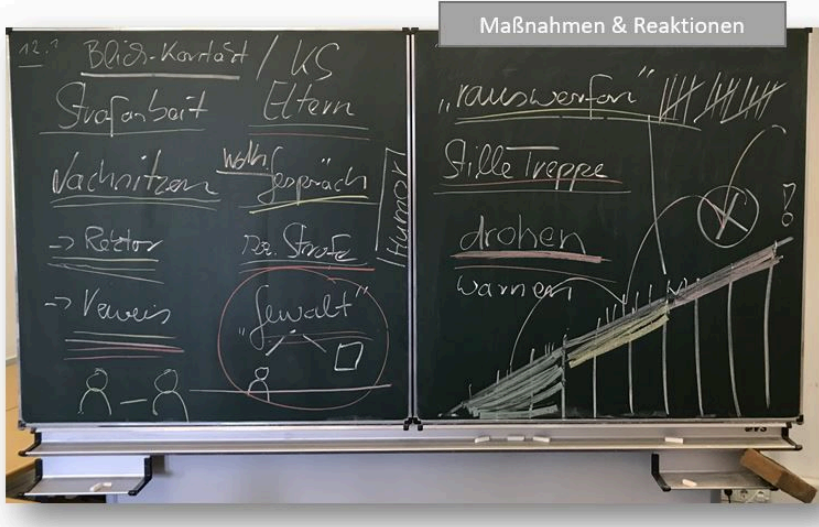 Maßnahmen & Reaktionen
Blick-Kontakt / KS
Strafarbeit
Eltern
Nachsitzen
Gespräch
-> Rektor
Strafe
-> Verweis
„Gewalt“
Humor
„rauswerfen“
Stille Treppe
drohen
warnen
!